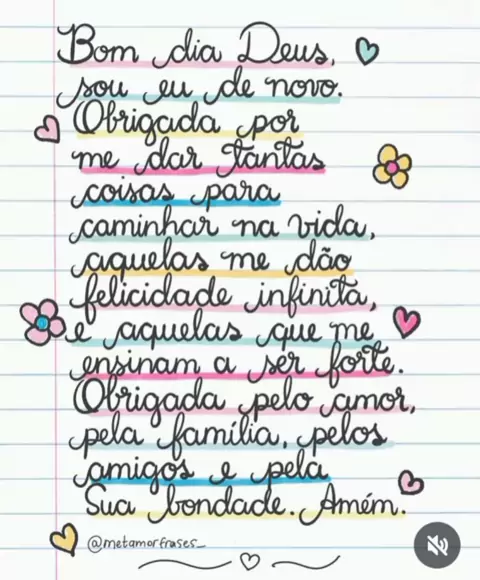 Bom dia Deus,
sou eu de novo.
Obrigada por
me dar tantas
coisas para
caminhar na vida,
aquelas me dão
felicidade infinita,
e aquelas que me
ensinam a ser forte.
Obrigada pelo amor,
pela família, pelos
amigos e pela
Sua bondade. Amém.
@metamorfrases_